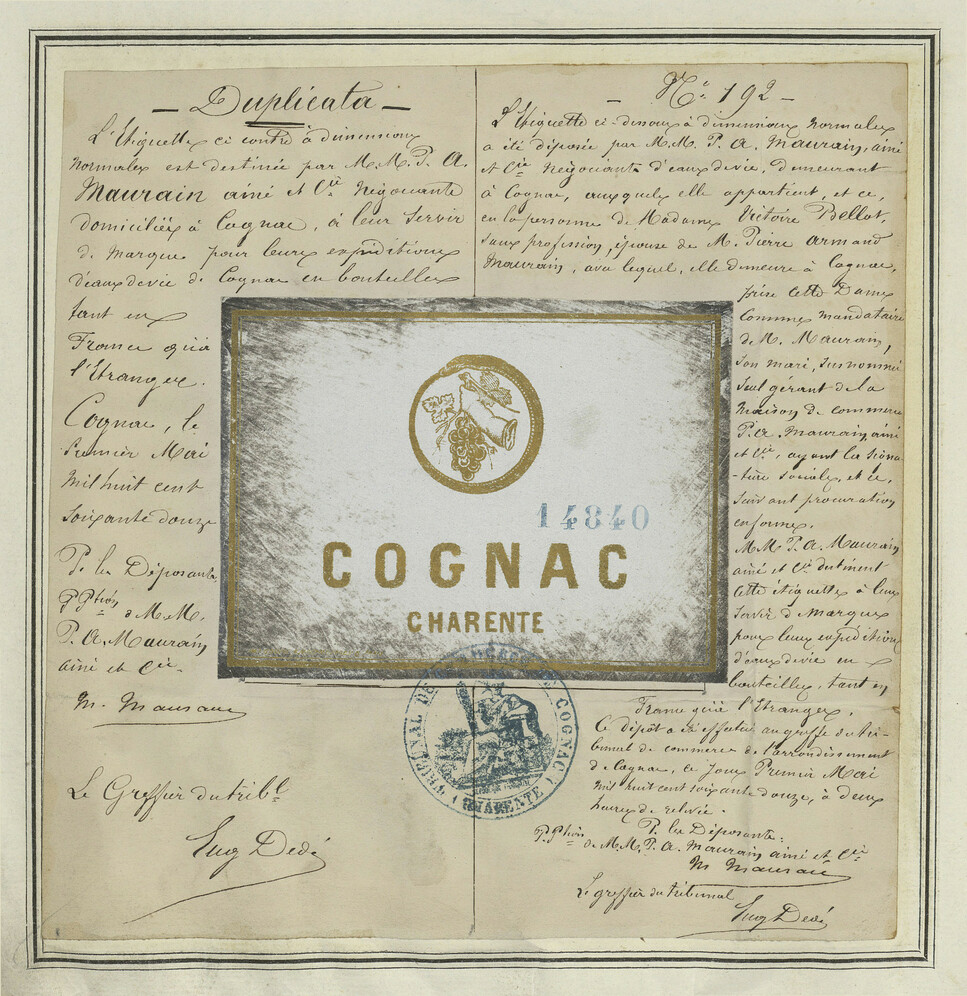 Duplicata
L'Etiquette ci contre à dimensions
normales est destinée par M.M. P. A.
Maurain ainé et Cie Négociants
domiciliés à Cognac, à leur servir
de Marque pour leurs expéditions
d'eaux de vie de Cognac en bouteilles
tant en
France qu'à
l'Etranger.
Cognac, le
Premier Mai
Mil huit cent
soixante douze
P. la Déposante
P. Pton
de M.M.
P. A. Maurain
ainé et Cie
M. Maurain
Le Greffier du tribl
Eug Dedé
No 192
L'Etiquette ci-dessous à dimensions normales
a été déposée par M.M. P. A. Maurain, ainé
et Cie Négociants d'eaux de vie, demeurant
à Cognac, auxquels elle appartient, et ce,
en la personne de Madame Victoire Bellot,
sans profession, épouse de M. Pierre Armand
Maurain, avec lequel, elle demeure à Cognac,
prise cette Dame
comme mandataire
de M. Maurain,
son mari, susnommé
seul gérant de la
Maison de commerce
P. A. Maurain ainé
et Cie, ayant la signa-
-ture sociale, et ce,
suivant procuration
en forme.
M.M. P. A. Maurain
ainé et Cie destinent
cette étiquette à leur
servir de Marque
pour leurs expéditions
d'eaux de vie en
bouteilles, tant en
France qu'à l'Etranger.
Ce dépôt a été effectué au greffe du tri-
bunal de commerce de l'arrondissement
de Cognac, ce jour Premier Mai
mil huit cent soixante douze, à deux
heures de relevée.
P. la Déposante:
P. Pton de M.M. P. A. Maurain ainé et Cie
M Maurain
Le greffier du tribunal
Eug Dedé
14840
COGNAC
CHARENTE
TRIBUNAL DE COMMERCE DE COGNAC
(CHARENTE)